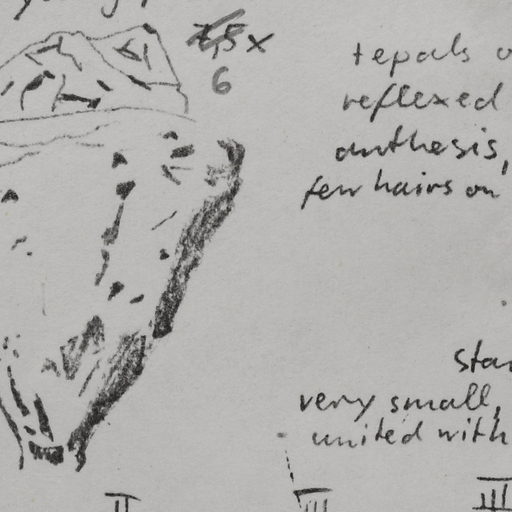 7,5 x
6
tepals
reflexed
anthesis,
few hairs on
very small,
united with
II
III
III